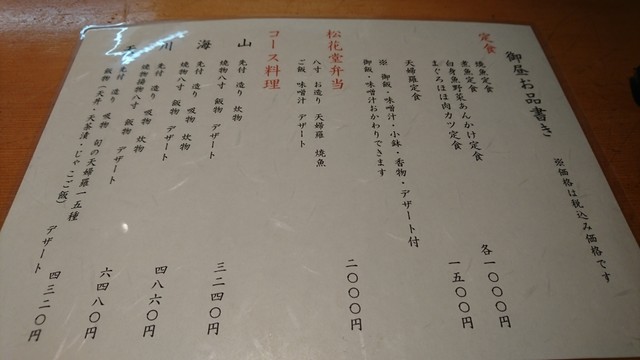 御昼お品書き
※価格は税込み価格です
定食
焼魚定食
煮魚定食
白身魚野菜あんかけ定食
まぐろほほ肉カツ定食
各一〇〇〇円
天婦羅定食
一五〇〇円
※ 御飯・味噌汁・小鉢・香物・デザート付
御飯・味噌汁おかわりできます
松花堂弁当
八寸 お造り 天婦羅 焼魚
ご飯 味噌汁 デザート
二〇〇〇円
コース料理
山
先付 造り 炊物
焼物八寸 飯物 デザート
三二四〇円
海
先付 造り 吸物 炊物
焼物八寸 飯物 デザート
四八六〇円
川
先付 造り 吸物 炊物
焼物揚物八寸 飯物 デザート
六四八〇円
先付 造り 吸物 旬の天婦羅一五種
飯物(天丼・天茶漬・じゃこご飯) デザート
四三二〇円